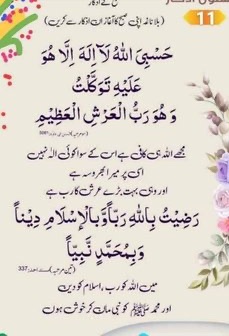 11
(بلا ناغہ اپنی صبح کا آغاز ان اذکار سے کریں)
حَسْبِیَ اللّٰہُ لَآ اِلٰہَ اِلَّا ھُوَ
عَلَیْہِ تَوَکَّلْتُ
وَھُوَ رَبُّ الْعَرْشِ الْعَظِیْمِ
مجھے اللہ ہی کافی ہے اس کے سوا کوئی الہ نہیں
اسی پر میرا بھروسہ ہے
اور وہی بہت بڑے عرش کا رب ہے
رَضِیْتُ بِاللّٰہِ رَبًّا وَّبِالْاِسْلَامِ دِیْنًا
وَبِمُحَمَّدٍ نَّبِیًّا
میں اللہ کو رب، اسلام کو دین
اور محمد ﷺ کو نبی مان کر خوش ہوں